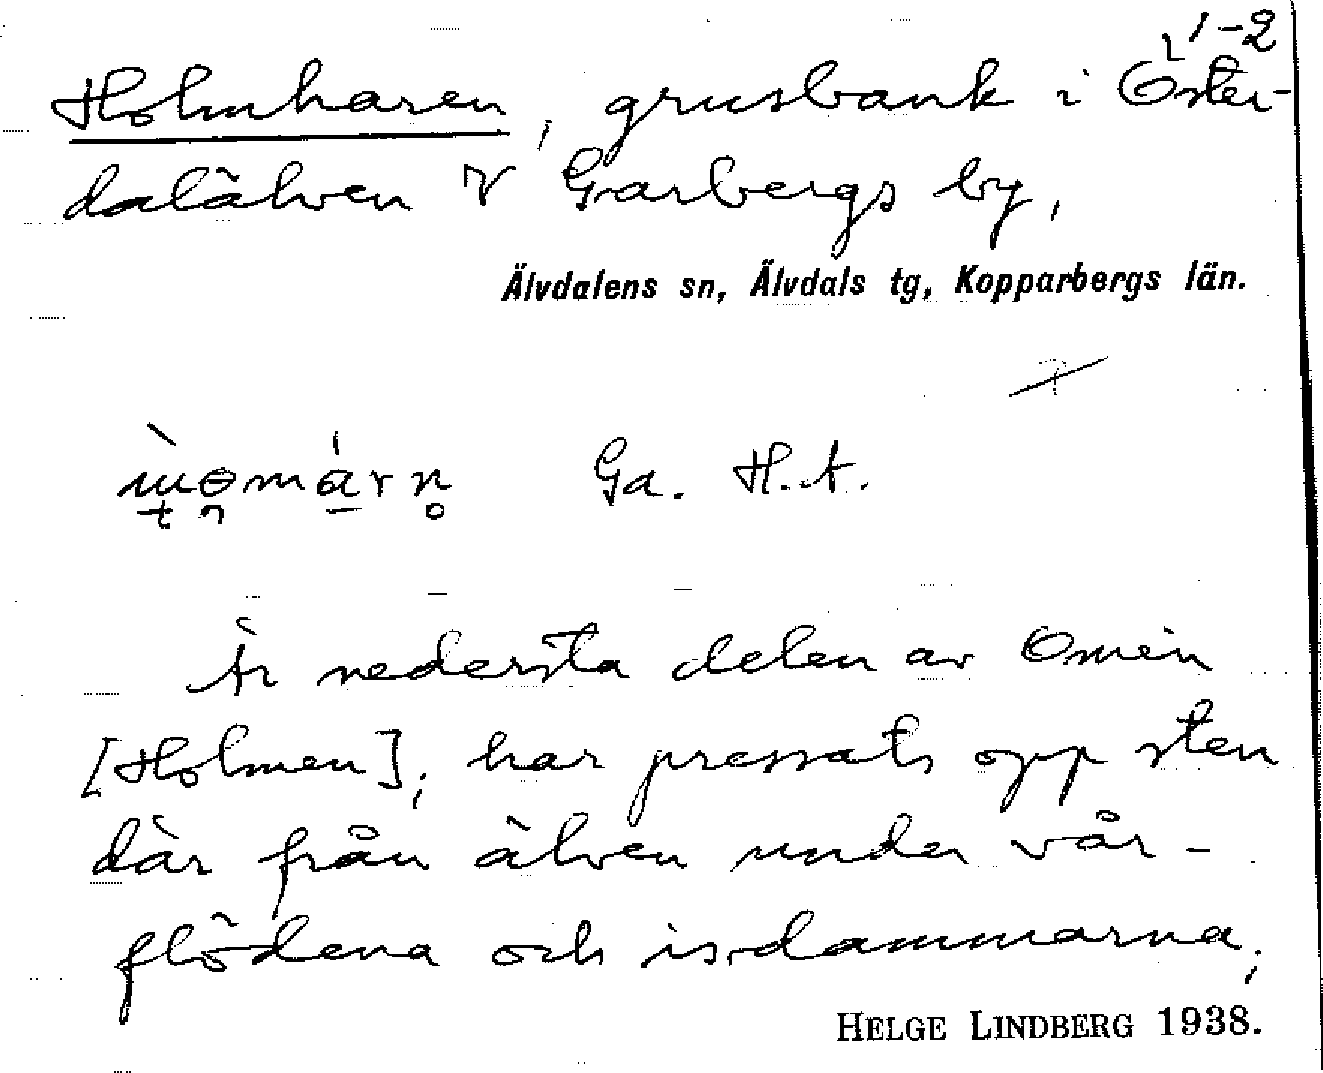 1-2
Holmharen, grusbank i Öster-
dalälven V Garbergs by,
Älvdalens sn, Älvdals tg, Kopparbergs län.
Ga. H.A.
Är nedersta delen av Omen
[Holmen]; har pressats opp sten
där från älven under vår-
flödena och isdammarna;
HELGE LINDBERG 1938.